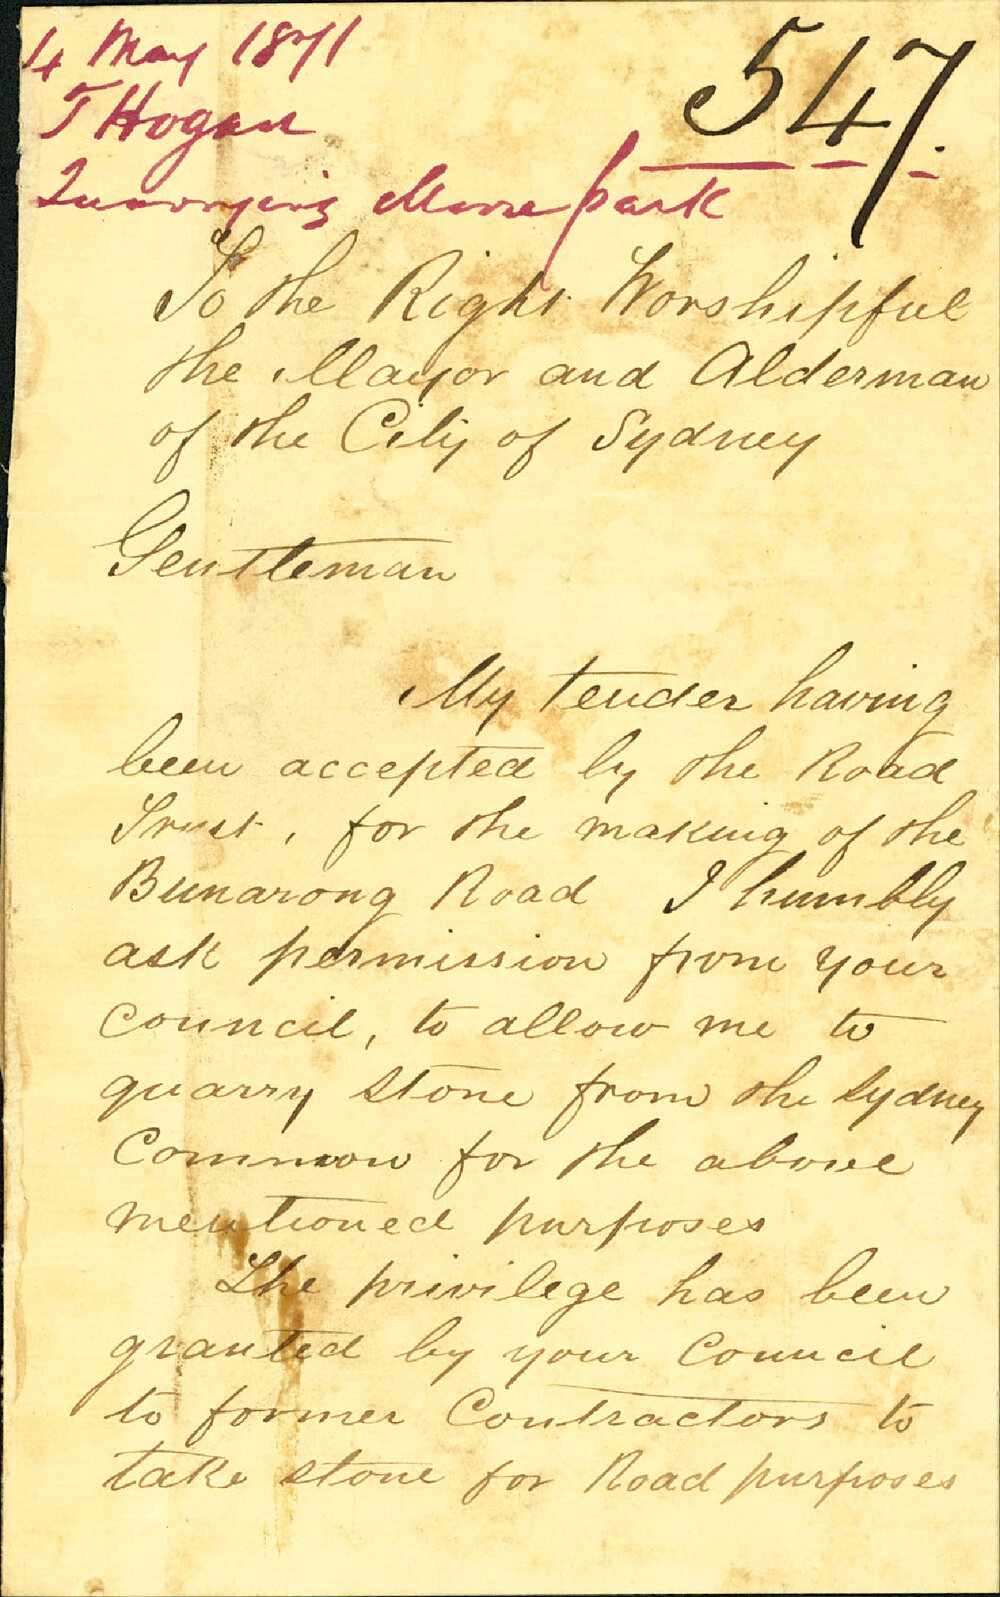 4 May 1871
547.
T Hogan
Quarrying Moore park
To the Right Worshipful
the Mayor and Alderman
of the City of Sydney
Gentleman
My tender having
been accepted by the Road
Trust, for the making of the
Bunarong Road I humbly
ask permission from your
Council, to allow me to
quarry stone from the Sydney
Common for the above
mentioned purposes
The privilege has been
granted by your Council
to former Contractors to
take stone for Road purposes